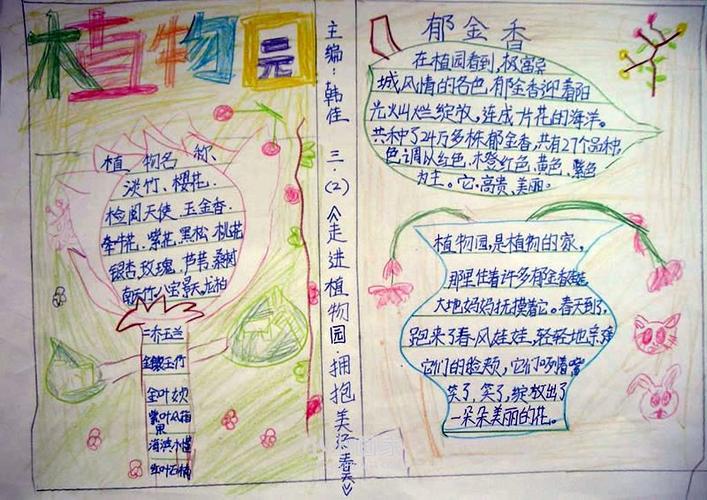 植物园
植 物名 称
淡竹、樱花、
检阅天使、玉金香、
牵牛花、紫花、黑松、桃花
银杏、玫瑰、芦苇、桑树
二乔玉兰
金镶玉竹
金叶女贞
紫叶风箱
果
海滨木槿
红叶石楠
主编：韩佳 三.(2)《走进植物园 拥抱美洛春天》
郁金香
在植园看到，极富异
城风情的各色郁金香迎着阳
光火山烂绽放，连成片花的海洋。
共种了24万多株郁金香，共有27个品种，
色调以红色、木登红色、黄色、紫色
为主。它高贵、美丽。
植物园，是植物的家，
那里住着许多郁金香娃娃
大地妈妈抚摸着它。春天到了，
跑来了春风娃娃，轻轻地亲
它们的脸颊，它们
笑了，笑了，绽放出了
一朵朵美丽的花。